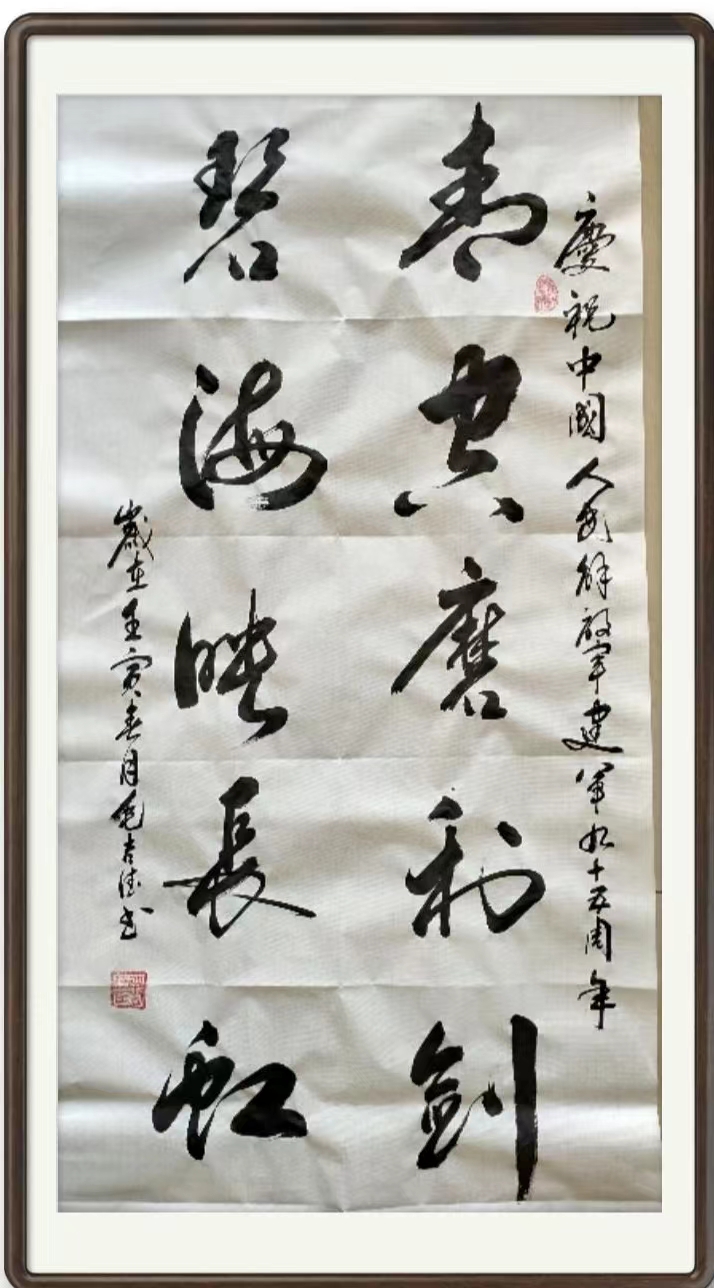 慶祝中國人民解放軍建軍九十五周年
青空磨利劍
碧海映長虹
歲在壬寅春月毛吉德书